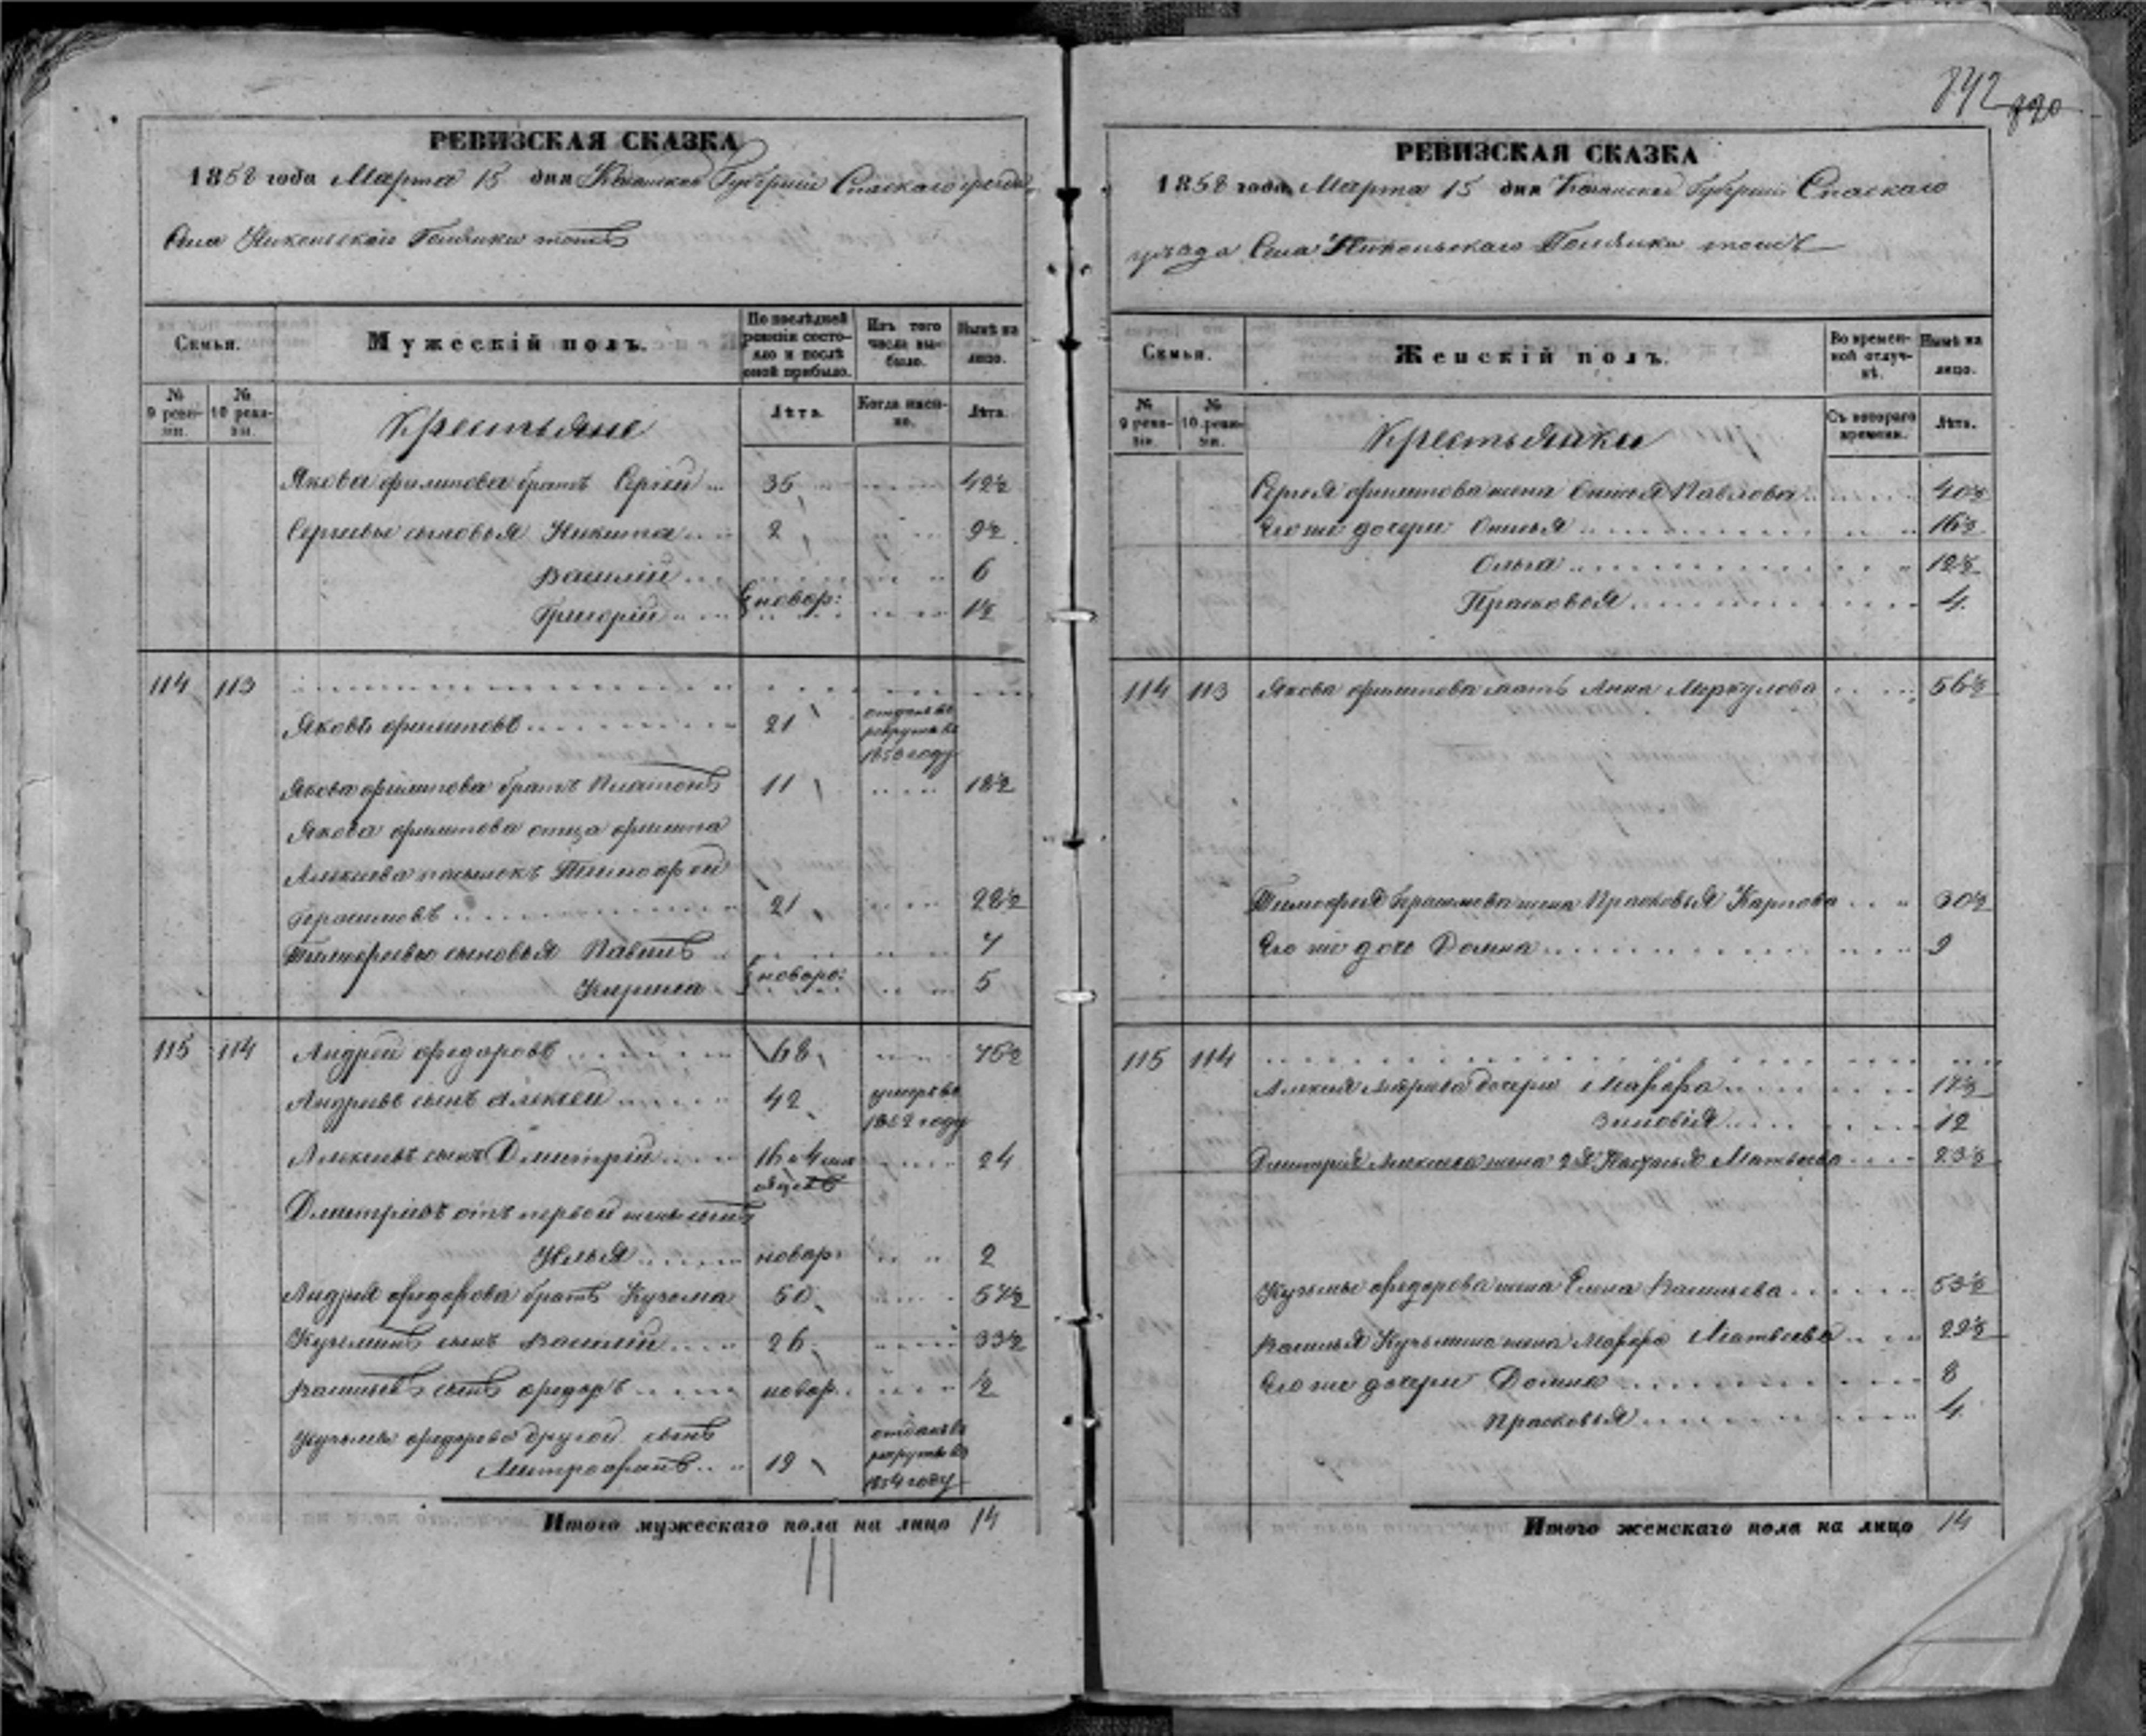 РЕВИЗСКАЯ СКАЗКА
1858 года Марта 15 дня Казанской Губерніи Спаскаго уѣзда
Села Никольскаго тожъ
Семьи.
Мужескій полъ.
По послѣдней ревизіи состояло и послѣ оной прибыло.
Изъ того числа выбыло.
Нынѣ на лицо.
№ 9 ревизіи.
№ 10 ревизіи.
Крестьяне
Лѣта.
Когда именно.
Лѣта.
Якова Филипова братъ Сергей 35 42½
Сергеевы сыновья Никита 2 9½
Василій 6
новор:
Григорій 1½
114 113
Яковъ Филиповъ 21 отданъ въ рекруты въ 1853 году
Якова Филипова братъ Платонъ 11 18½
Якова Филипова отца Филипа
Алексеева пасынокъ Тимофей
Герасимовъ 21 28½
Тимофеевы сыновья Павелъ 7
новоро:
Кирила 5
115 114 Андрей Федоровъ 68 75½
Андреевъ сынъ Алексей 42 умеръ въ 1852 году
Алексеевъ сынъ Дмитрій 16 и 4 24
Дмитріевъ отъ первой жены сынъ
Илья новор: 2
Андрея Федорова братъ Кузьма 50 57½
Кузьминъ сынъ Василій 26 33½
Васильевъ сынъ Федоръ новор. ½
Кузьмы Федорова другой сынъ
Митрофанъ 19 отданъ въ рекруты въ 1854 году
Итого мужескаго пола на лицо 14
842 820
РЕВИЗСКАЯ СКАЗКА
1858 года Марта 15 дня Казанской Губерніи Спаскаго
уѣзда Села Никольскаго тожъ
Семьи.
Женскій полъ.
Во временной отлучкѣ.
Нынѣ на лицо.
№ 9 ревизіи.
№ 10 ревизіи.
Крестьянки
Съ котораго времени.
Лѣта.
Сергея Филипова жена Павлова 40½
Его же дочери 16½
Ольга 12½
Прасковья 4
114 113 Якова Филипова мать Анна Меркулова 56½
Тимофея Герасимова жена Прасковья Карпова 30½
Его же дочь Домна 9
115 114
Алексея дочери Марфа 17½
Зиновія 12
Дмитрія Алексеева жена 2я Настасья Матвеева 23½
Кузьмы Федорова жена Елена Васильева 53½
Василья Кузьмина жена Марфа Матвеева 29½
Его же дочери Домна 8
Прасковья 4
Итого женскаго пола на лицо 14